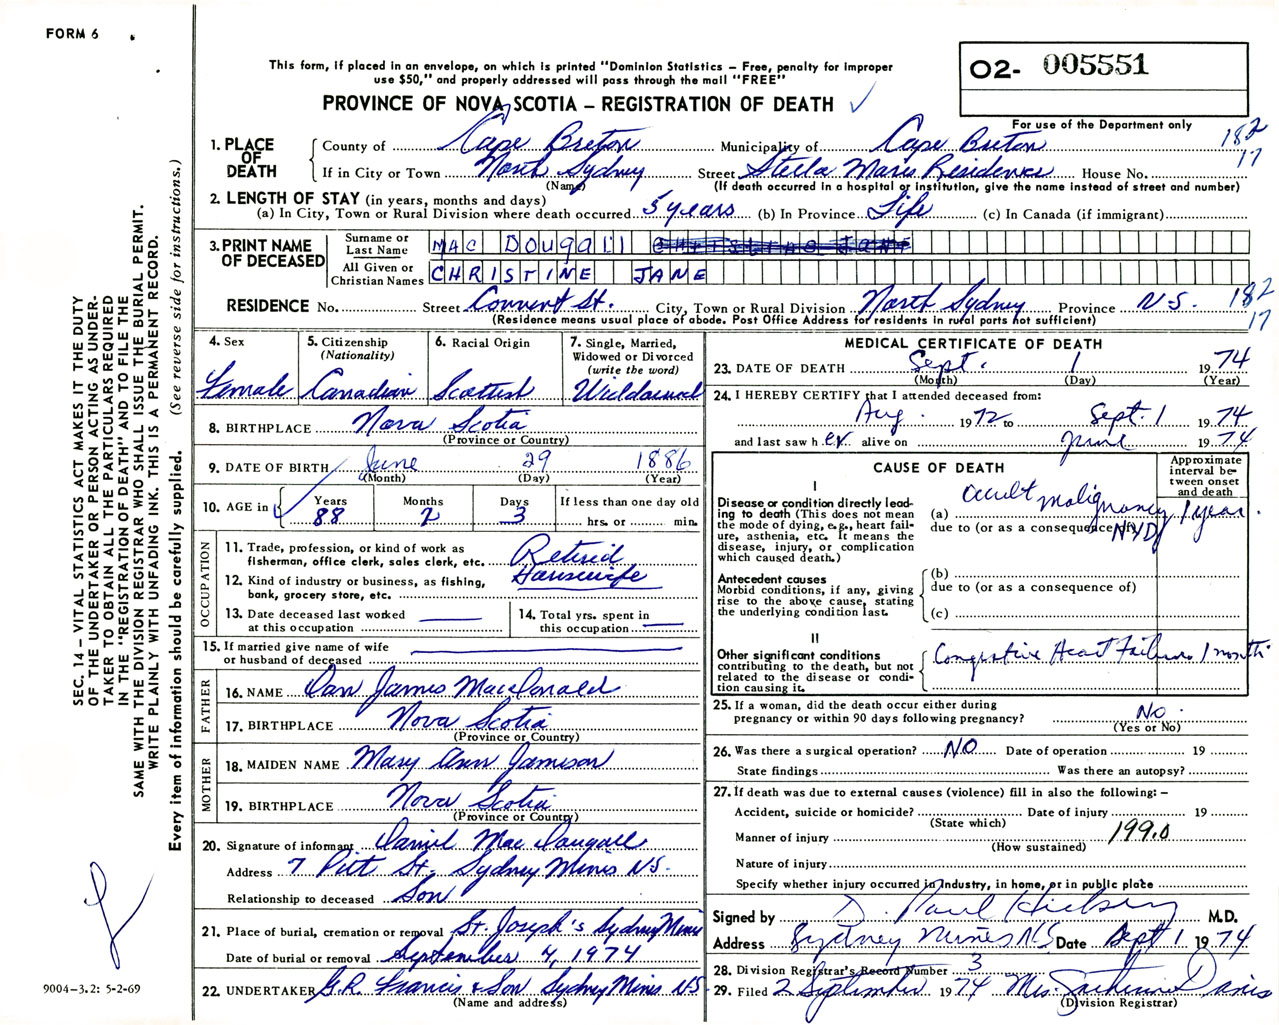 FORM 6
This form, if placed in an envelope, on which is printed "Dominion Statistics – Free, penalty for improper
use $50," and properly addressed will pass through the mail "FREE"
PROVINCE OF NOVA SCOTIA – REGISTRATION OF DEATH ✓
O2- 005551
For use of the Department only
182
17
1. PLACE OF DEATH
County of Cape Breton Municipality of Cape Breton
If in City or Town North Sydney Street Stella Maris Residence House No.
(Name) (If death occurred in a hospital or institution, give the name instead of street and number)
2. LENGTH OF STAY (in years, months and days)
(a) In City, Town or Rural Division where death occurred 5 years (b) In Province Life (c) In Canada (if immigrant)
3. PRINT NAME OF DECEASED
Surname or Last Name MAC DOUGALL
All Given or Christian Names CHRISTINE JANE
RESIDENCE No. Street Convent St. City, Town or Rural Division North Sydney Province N.S. 182
17
(Residence means usual place of abode. Post Office Address for residents in rural parts not sufficient)
4. Sex
Female
5. Citizenship
(Nationality)
Canadian
6. Racial Origin
Scottish
7. Single, Married,
Widowed or Divorced
(write the word)
Widdowed
8. BIRTHPLACE Nova Scotia
(Province or Country)
9. DATE OF BIRTH June 29 1886
(Month) (Day) (Year)
10. AGE in
Years Months Days If less than one day old
88 2 3 hrs. or min.
OCCUPATION
11. Trade, profession, or kind of work as
fisherman, office clerk, sales clerk, etc. Retired
12. Kind of industry or business, as fishing,
bank, grocery store, etc. Housewife
13. Date deceased last worked
at this occupation
14. Total yrs. spent in
this occupation
15. If married give name of wife
or husband of deceased
FATHER
16. NAME Dan James MacDonald
17. BIRTHPLACE Nova Scotia
(Province or Country)
MOTHER
18. MAIDEN NAME Mary Ann Jamison
19. BIRTHPLACE Nova Scotia
(Province or Country)
20. Signature of informant Daniel MacDougall
Address 7 Pitt St. Sydney Mines NS.
Relationship to deceased Son
21. Place of burial, cremation or removal St. Joseph's Sydney Mines
Date of burial or removal September 4, 1974
22. UNDERTAKER G.R. Francis & Son Sydney Mines NS.
(Name and address)
MEDICAL CERTIFICATE OF DEATH
23. DATE OF DEATH Sept. 1 1974
(Month) (Day) (Year)
24. I HEREBY CERTIFY that I attended deceased from:
Aug. 1972 to Sept. 1 1974
and last saw her alive on June 1974
CAUSE OF DEATH
Approximate
interval be-
tween onset
and death
I
Disease or condition directly lead-
ing to death (This does not mean
the mode of dying, e.g., heart fail-
ure, asthenia, etc. It means the
disease, injury, or complication
which caused death.)
(a) Occult malignancy 1 year.
due to (or as a consequence of) NYD
Antecedent causes
Morbid conditions, if any, giving
rise to the above cause, stating
the underlying condition last.
(b)
due to (or as a consequence of)
(c)
II
Other significant conditions
contributing to the death, but not
related to the disease or condi-
tion causing it.
Congestive Heart Failure 1 month
25. If a woman, did the death occur either during
pregnancy or within 90 days following pregnancy? No.
(Yes or No)
26. Was there a surgical operation? NO Date of operation 19
State findings Was there an autopsy?
27. If death was due to external causes (violence) fill in also the following: –
Accident, suicide or homicide? Date of injury 19
(State which)
Manner of injury 199.0
(How sustained)
Nature of injury
Specify whether injury occurred in industry, in home, or in public place
Signed by D. Paul M.D.
Address Sydney Mines NS Date Sept 1 1974
28. Division Registrar's Record Number 3
29. Filed 2 September 1974 Mrs. Davis
(Division Registrar)
SEC. 14 – VITAL STATISTICS ACT MAKES IT THE DUTY
OF THE UNDERTAKER OR PERSON ACTING AS UNDER-
TAKER TO OBTAIN ALL THE PARTICULARS REQUIRED
IN THE "REGISTRATION OF DEATH" AND TO FILE THE
SAME WITH THE DIVISION REGISTRAR WHO SHALL ISSUE THE BURIAL PERMIT.
WRITE PLAINLY WITH UNFADING INK. THIS IS A PERMANENT RECORD.
Every item of information should be carefully supplied. (See reverse side for instructions.)
9004-3.2: 5-2-69